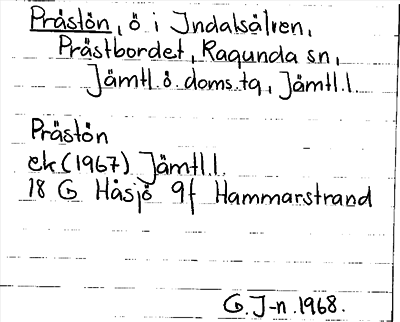 Prästön, ö i Indalsälven,
Prästbordet, Ragunda sn,
Jämtl.ö.doms.tg, Jämtl.l.
Prästön
ek (1967) Jämtl.l.
18 G Håsjö 9f Hammarstrand
G.J-n.1968.